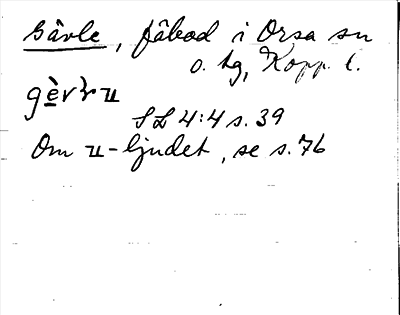 Gåvle, fäbod i Orsa sn
o. tg, Kopp. l.
SL 4:4 s. 39
Om u-ljudet, se s. 76